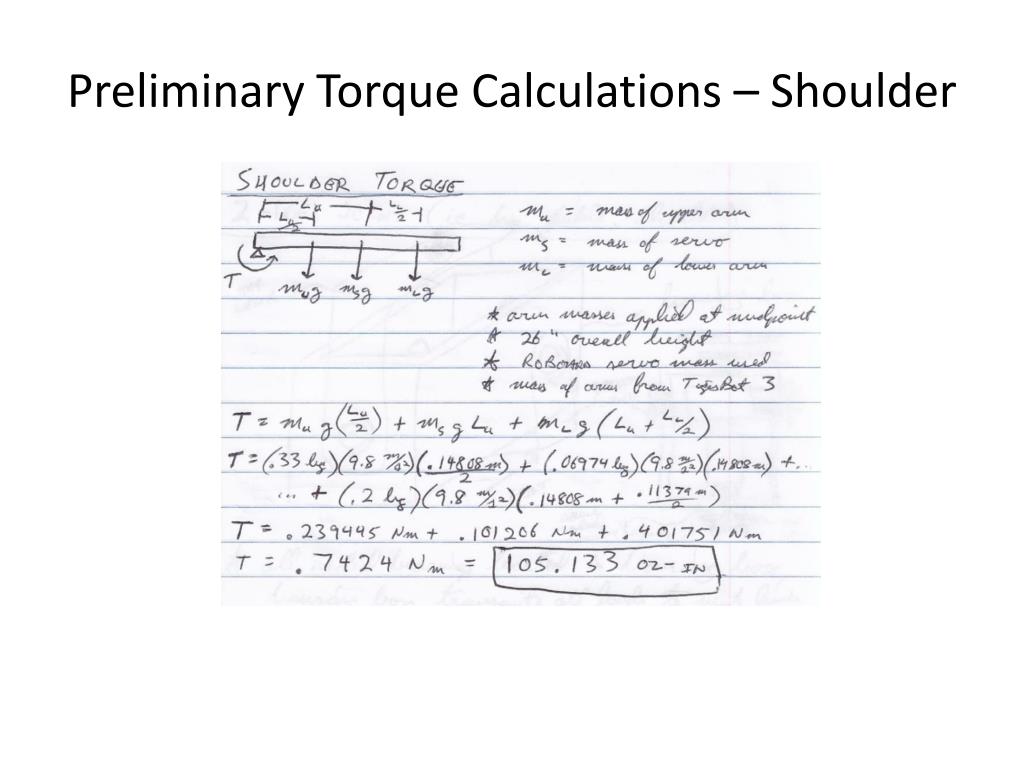 Preliminary Torque Calculations – Shoulder
SHOULDER TORQUE
Lu
Lu/2 LL/2
T
mug msg mLg
mu = mass of upper arm
ms = mass of servo
mL = mass of lower arm
* arm masses applied at midpoint
* 26" overall height
* ROBOTARD servo mass used
* mass of arms from TigerBot 3
T = mu g(Lu/2) + ms g Lu + mL g (Lu + LL/2)
T = (.33 kg)(9.8 m/s2)(.14808m)/2 + (.06974 kg)(9.8 m/s2)(.14808m) + ...
... + (.2 kg)(9.8 m/s2)(.14808m + .11379m/2)
T = .239445 Nm + .101206 Nm + .401751 Nm
T = .7424 Nm = 105.133 OZ-IN